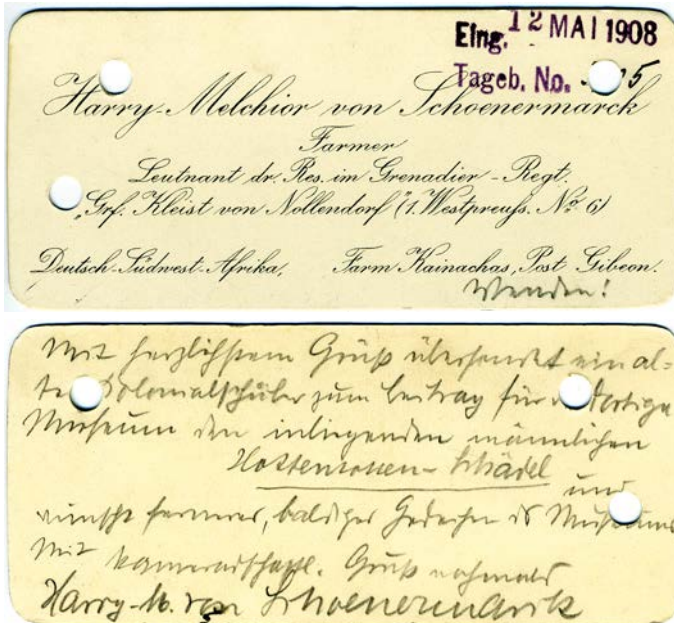 Eing. 12 MAI 1908
Tageb. No. 5
Harry-Melchior von Schoenermarck
Farmer
Leutnant dr. Res. im Grenadier-Regt.
„Grf. Kleist von Nollendorf" (1. Westpreuß. No 6)
Deutsch-Südwest-Afrika, Farm Kainachas, Post Gibeon.
Wenden!
Mit herzlichstem Gruß übersendet ein al-
ter Kolonialschüler zum Beitrag für dortige
Museum den inliegenden männlichen
Hottentotten-Schädel
und
wünscht ferneres, baldiges Gedeihen des Museums
Mit kameradschaftl. Gruß nochmals
Harry-M. von Schoenermarck